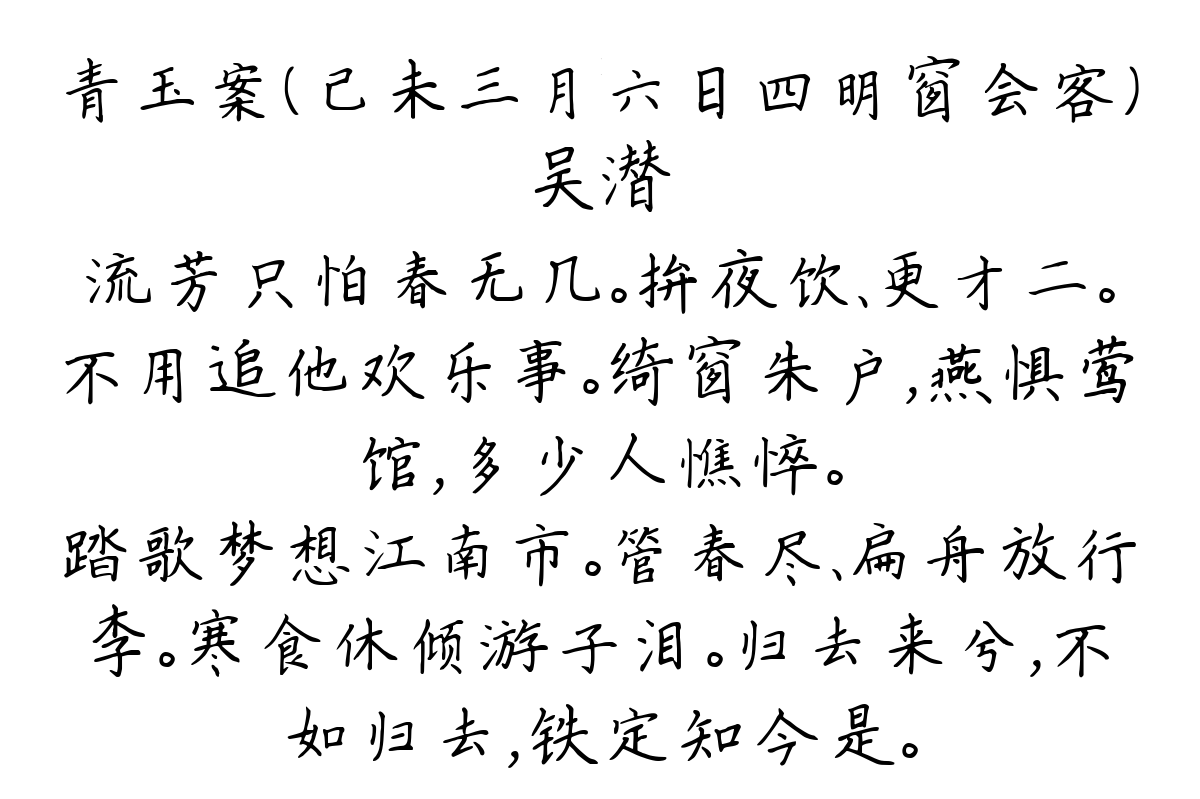 青玉案(己未三月六日四明窗会客)
吴潜
流芳只怕春无几。拚夜饮、更才二。
不用追他欢乐事。绮窗朱户,燕惧莺
馆,多少人憔悴。
踏歌梦想江南市。管春尽、扁舟放行
李。寒食休倾游子泪。归去来兮,不
如归去,铁定知今是。